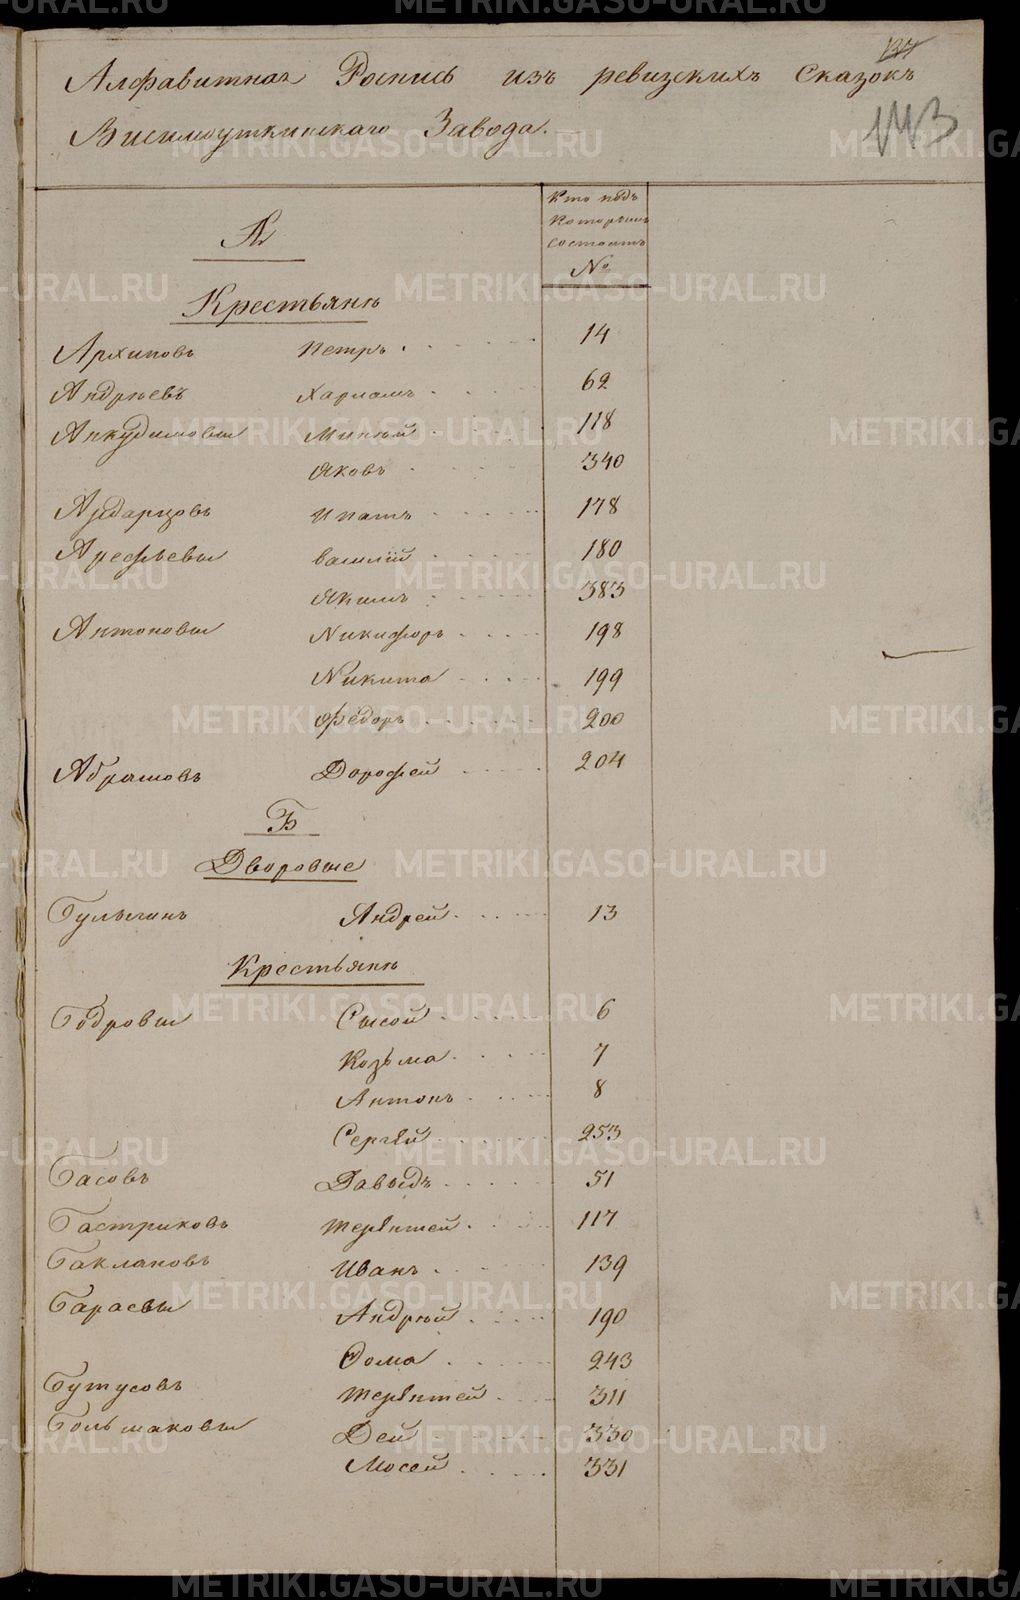 137
Алфавитная Роспись изъ ревизскихъ Сказокъ
143
Висимоуткинскаго Завода.
Кто подъ
Которымъ
состоитъ
№
А
Крестьянѣ
Архиповъ Петръ 14
Андрѣевъ Харламъ 62
Анкудимовы Минѣй 118
Яковъ 340
Ипатъ 178
Арефьевы Василій 180
Якимъ 383
Антоновы Никифоръ 198
Никита 199
Федоръ 200
Абрамовъ Дорофей 204
Б
Дворовые
Булыгинъ Андрей 13
Крестьянѣ
Бодровы Сысой 6
Козьма 7
Антонъ 8
Сергѣй 253
Басовъ Давыдъ 51
Бастриковъ Терѣнтей 117
Баклановъ Иванъ 139
Барасвы Андрѣй 190
Фома 243
Бутусовъ Терѣнтей 311
Большаковы Дей 330
Мосей 331
METRIKI.GASO-URAL.RU